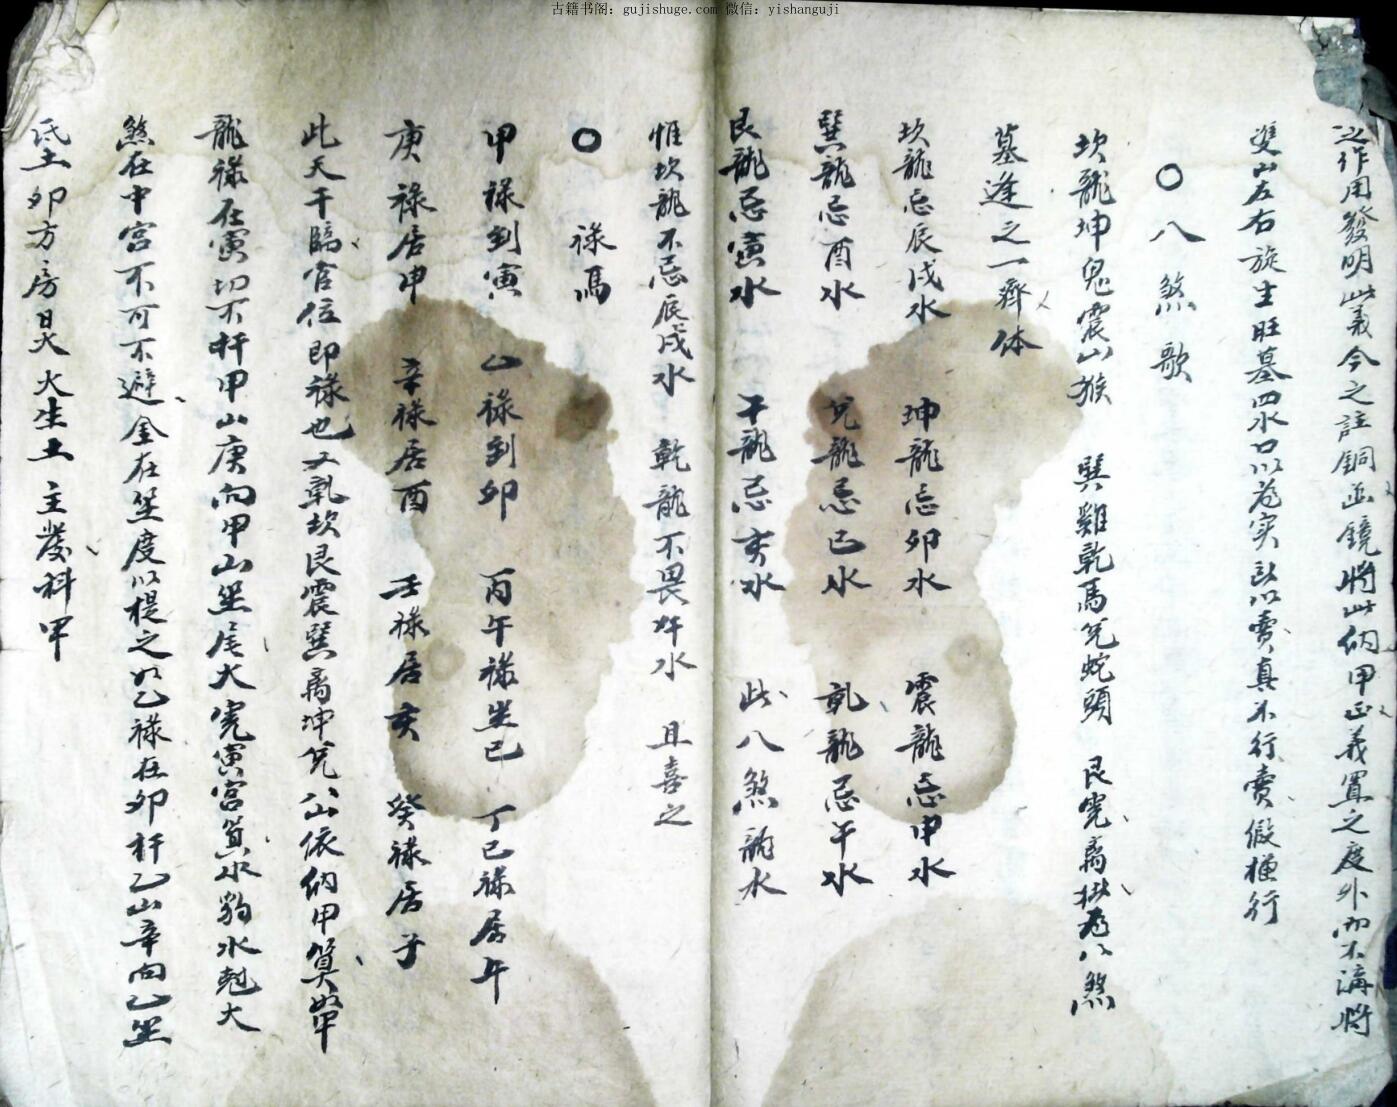 古籍书阁：gujishuge.com 微信：yishanguji
之作用發明此義今之註銅函鏡將此納甲正義置之度外而不講將
雙山左右旋生旺墓四水口以為實且以賣真不行賣假極行
〇八煞歌
坎龍坤兔震山猴 巽雞乾馬兌蛇頭 艮虎离猪為八煞
墓逢之一齊休
坎龍忌辰戌水 坤龍忌卯水 震龍忌申水
巽龍忌酉水 兌龍忌巳水 乾龍忌午水
艮龍忌寅水 干龍忌亥水 此八煞龍水
惟坎龍不忌辰戌水 乾龍不畏午水 且喜之
〇 禄馬
甲禄到寅 乙禄到卯 丙午禄坐巳 丁巳禄居午
庚禄居申 辛禄居酉 壬禄居亥 癸禄居子
此天干臨官位即禄也又乾坎艮震巽离坤兌八山依納甲算如甲
龍禄在寅切不扦甲山庚向甲山坐尾火宪寅宮箕水豹水尅火
煞在中宮不可不避金在坐度以楻之如乙禄在卯扦乙山辛向乙坐
氐土卯方房日火火生土主發科甲